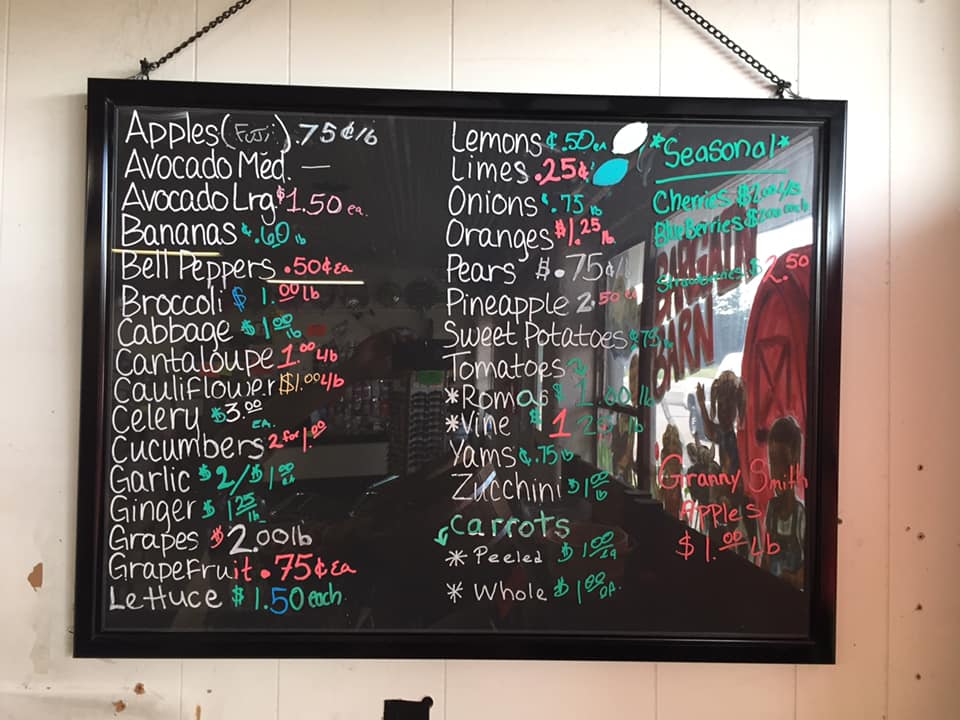 Apples (Fuji) .75¢ lb
Avocado Med. —
Avocado Lrg. $1.50 ea.
Bananas ¢.60 lb
Bell Peppers .50¢ ea
Broccoli $ 1.00 lb
Cabbage $1.00 lb
Cantaloupe 1.00 Lb
Cauliflower $1.00 Lb
Celery $3.00 EA.
Cucumbers 2 for 1.00
Garlic $2/$1.00 EA
Ginger $ 1.25 lb
Grapes $2.00 lb
Grapefruit .75¢ Ea
Lettuce $ 1.50 each
Lemons ¢.50 ea
Limes .25¢
Onions ¢.75 lb
Oranges $1.25 lb
Pears $.75¢
Pineapple 2.50 ea
Sweet Potatoes
Tomatoes
*Romas $ 1.00 lb
*Vine $ 1.25 lb
Yams ¢.75 lb
Zucchini $1.00 lb
Carrots
* Peeled $ 1.00 EA
* Whole $ 1.00 EA.
*Seasonal*
Cherries $2.00 Lb
BlueBerries $2.00 each
Strawberries $2.50
BARGAIN
BARN
Granny Smith
Apples
$1.00 Lb